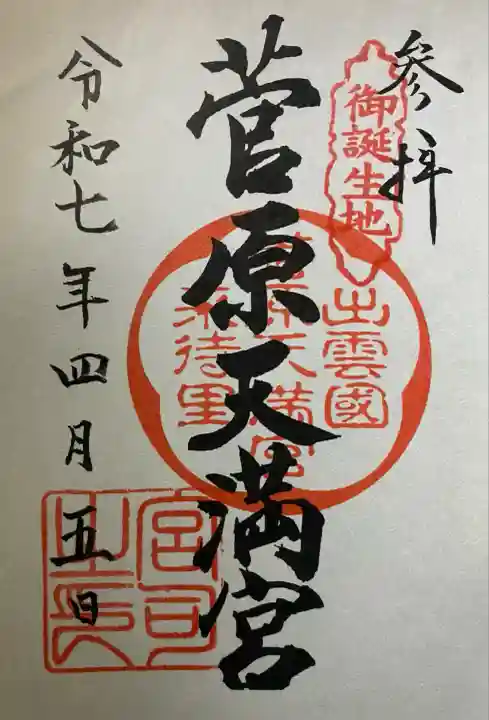 参拝
御誕生地
出雲國
菅原天満宮
来待里
菅原天満宮
令和七年四月五日
宮司之印